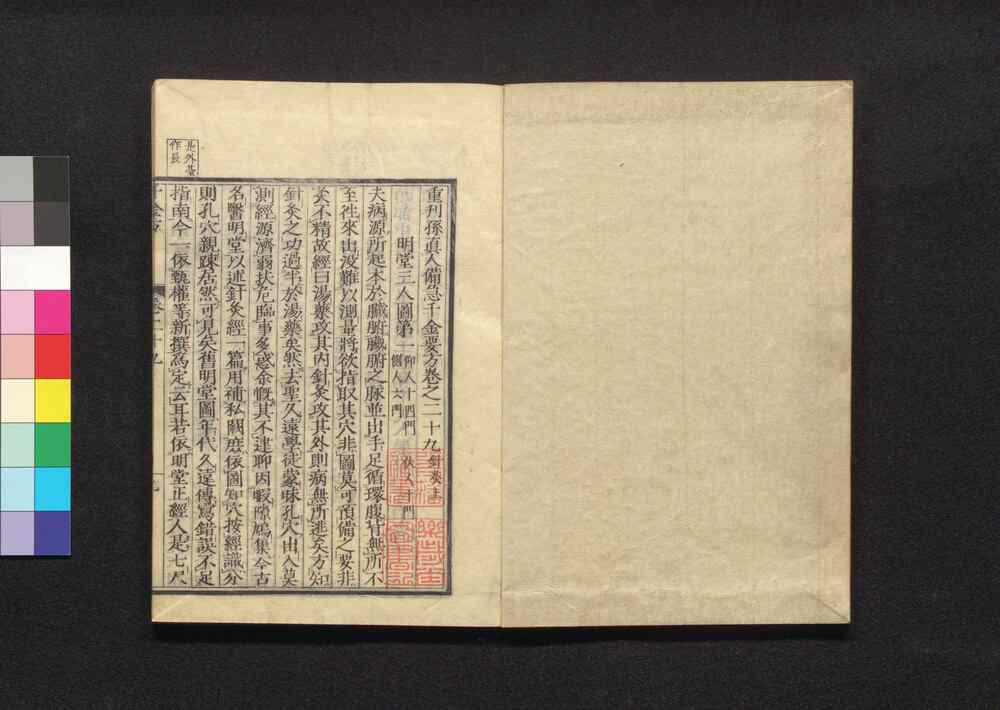 重刊孫真人備急千金要方卷之二十九 針灸上
明堂三人圖第一 仰人十四門 伏人十門 側人六門
夫病源所起本於臓腑臓腑之脉並出手足循環腹背無所不
至徃來出没難以測量將欲指取其穴非圖莫可預備之要非
灸不精故經曰湯藥攻其内針灸攻其外則病無所逃矣方知
針灸之功過半於湯藥矣然去聖久遠學徒蒙昧孔穴出入莫
測經源濟弱扶危臨事多惑余慨其不逮聊因暇隙鳩集今古
名醫明堂以述針灸經一篇用補私闕庶依圖知穴按經識分
則孔穴親踈居然可見矣舊明堂圖年代久遠傳寫錯誤不足
指南今一依甄權等新撰爲定云耳若依明堂正經人是七尺
是外基
作長